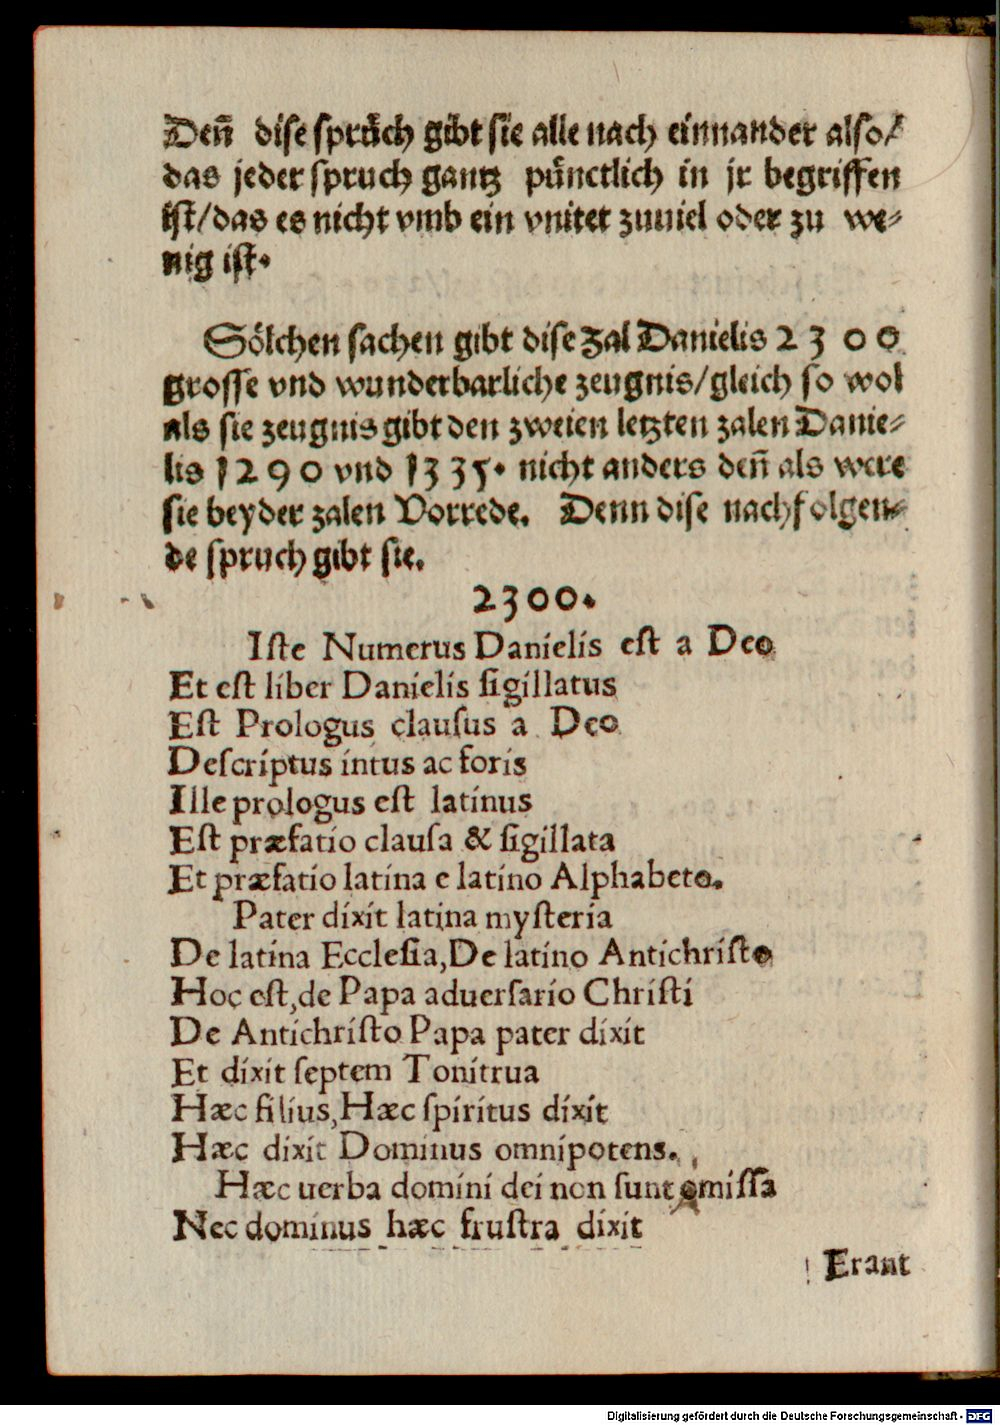 Deñ dise sprüch gibt sie alle nach einnander also/
das jeder spruch gantz pünctlich in jr begriffen
ist/das es nicht vmb ein vnitet zuuiel oder zu we⸗
nig ist.
Sölchen sachen gibt dise zal Danielis 2 3 0 0
grosse vnd wunderbarliche zeugnis/gleich so wol
als sie zeugnis gibt den zweien letzten zalen Danie⸗
lis 1 2 9 0 vnd 1 3 3 5. nicht anders deñ als were
sie beyder zalen Vorrede. Denn dise nachfolgen⸗
de spruch gibt sie.
2300.
Iste Numerus Danielis est a Deo
Et est liber Danielis sigillatus
Est Prologus clausus a Deo
Descriptus intus ac foris
Ille prologus est latinus
Est præfatio clausa & sigillata
Et præfatio latina e latino Alphabeto.
Pater dixit latina mysteria
De latina Ecclesia,De latino Antichristo
Hoc est,de Papa aduersario Christi
De Antichristo Papa pater dixit
Et dixit septem Tonitrua
Hæc filius,Hæc spiritus dixit
Hæc dixit Dominus omnipotens.
Hæc uerba domini dei non sunt omissa
Nec dominus hæc frustra dixit
Erant
Digitalisierung gefördert durch die Deutsche Forschungsgemeinschaft - DFG